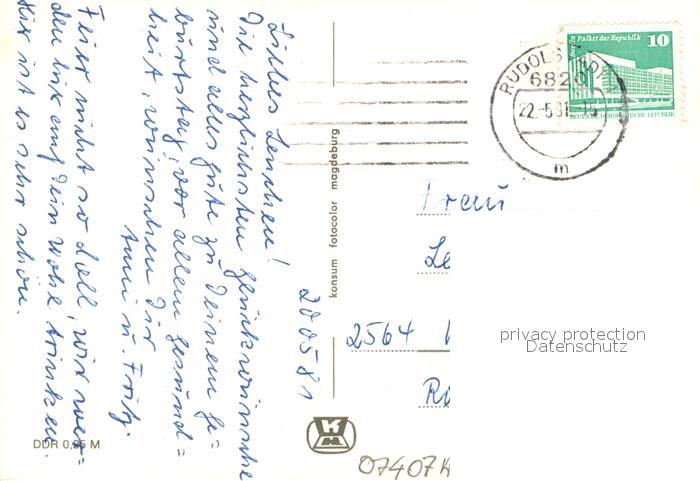 Liebes Lenchen!
Die herzlichsten Glückwünsche
und alles gute zu Deinem Ge=
burtstag, vor allem Gesund=
heit, wünschen Dir
Anni u. Fritz.
Feier nicht so doll, wir wer=
den hier auf Dein Wohl trinken.
Hier ist es sehr schön.
20.5.81
konsum fotocolor magdeburg
Berlin Palast der Republik
10
DEUTSCHE DEMOKRATISCHE REPUBLIK
RUDOLSTADT 1
6820
22.-5.81
m
Frau
Le
2564
Ro
privacy protection
Datenschutz
DDR 0,25 M
07407K